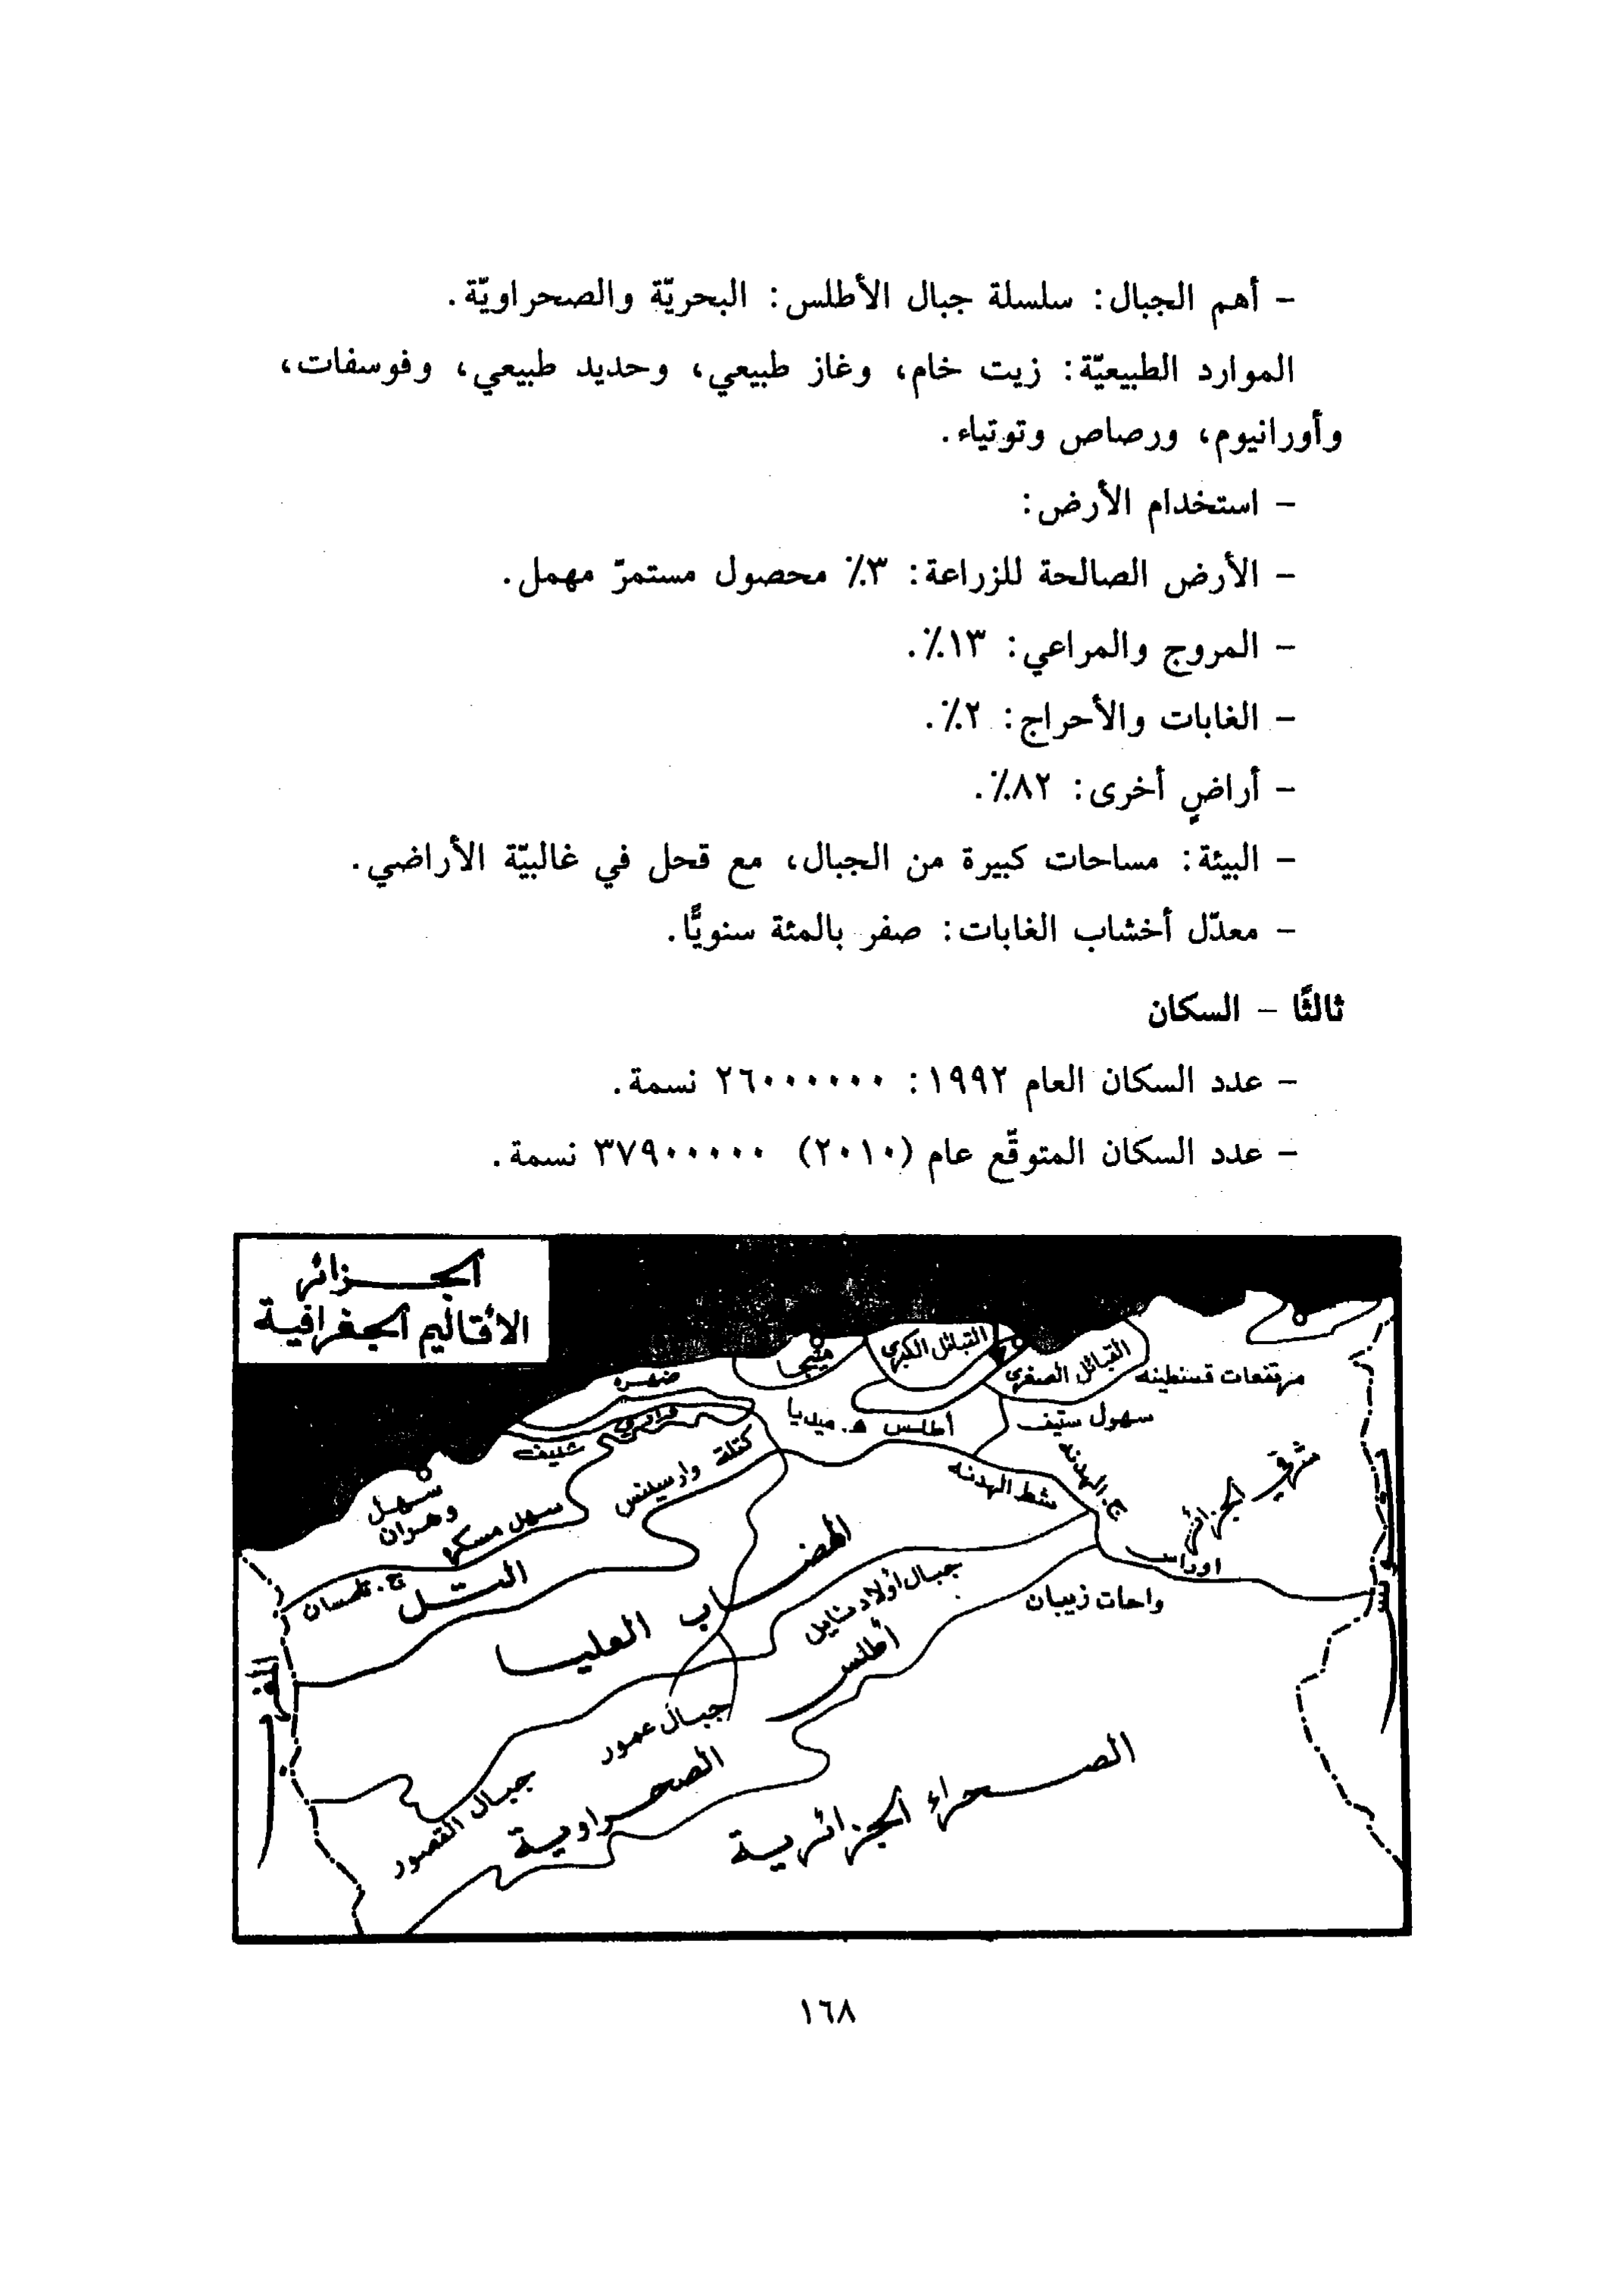 – أهم الجبال: سلسلة جبال الأطلس: البحريّة والصحراويّة.
الموارد الطبيعيّة: زيت خام، وغاز طبيعي، وحديد طبيعي، وفوسفات،
وأورانيوم، ورصاص وتوتياء.
– استخدام الأرض:
– الأرض الصالحة للزراعة: ٣٪ محصول مستمرّ مهمل.
– المروج والمراعي: ١٣٪.
– الغابات والأحراج: ٢٪.
– أراضٍ أخرى: ٨٢٪.
– البيئة: مساحات كبيرة من الجبال، مع قحل في غالبيّة الأراضي.
– معدّل أخشاب الغابات: صفر بالمئة سنويًّا.
ثالثًا – السكان
– عدد السكان العام ١٩٩٢: ٢٦٠٠٠٠٠٠ نسمة.
– عدد السكان المتوقّع عام (٢٠١٠) ٣٧٩٠٠٠٠٠ نسمة.
الجزائر
الأقاليم الجغرافية
القبائل الكبرى
القبائل الصغرى
مرتفعات قسنطينه
ضهره
أطلس ه. ميديا
سهول ستيف
شليف
كتلة وارسينس
شط الهدنه
ج. الهدنه
شرق الجزائر
سهل
وهران
سهل مسكره
ج. تلمسان
التل
الهضاب العليا
جبال أولاد نايل
اوراس
واحات زيبان
أطلس
جبال عمور
الصحراوية
جبال القصور
الصحراء الجزائرية
١٦٨